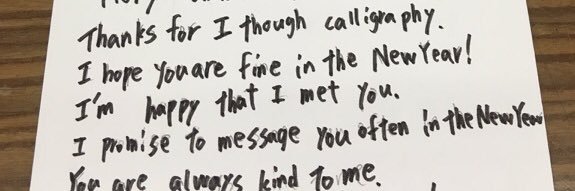 Thanks for I though calligraphy.
I hope you are fine in the New Year!
I'm happy that I met you.
I promise to message you often in the New Year
You are always kind to me.